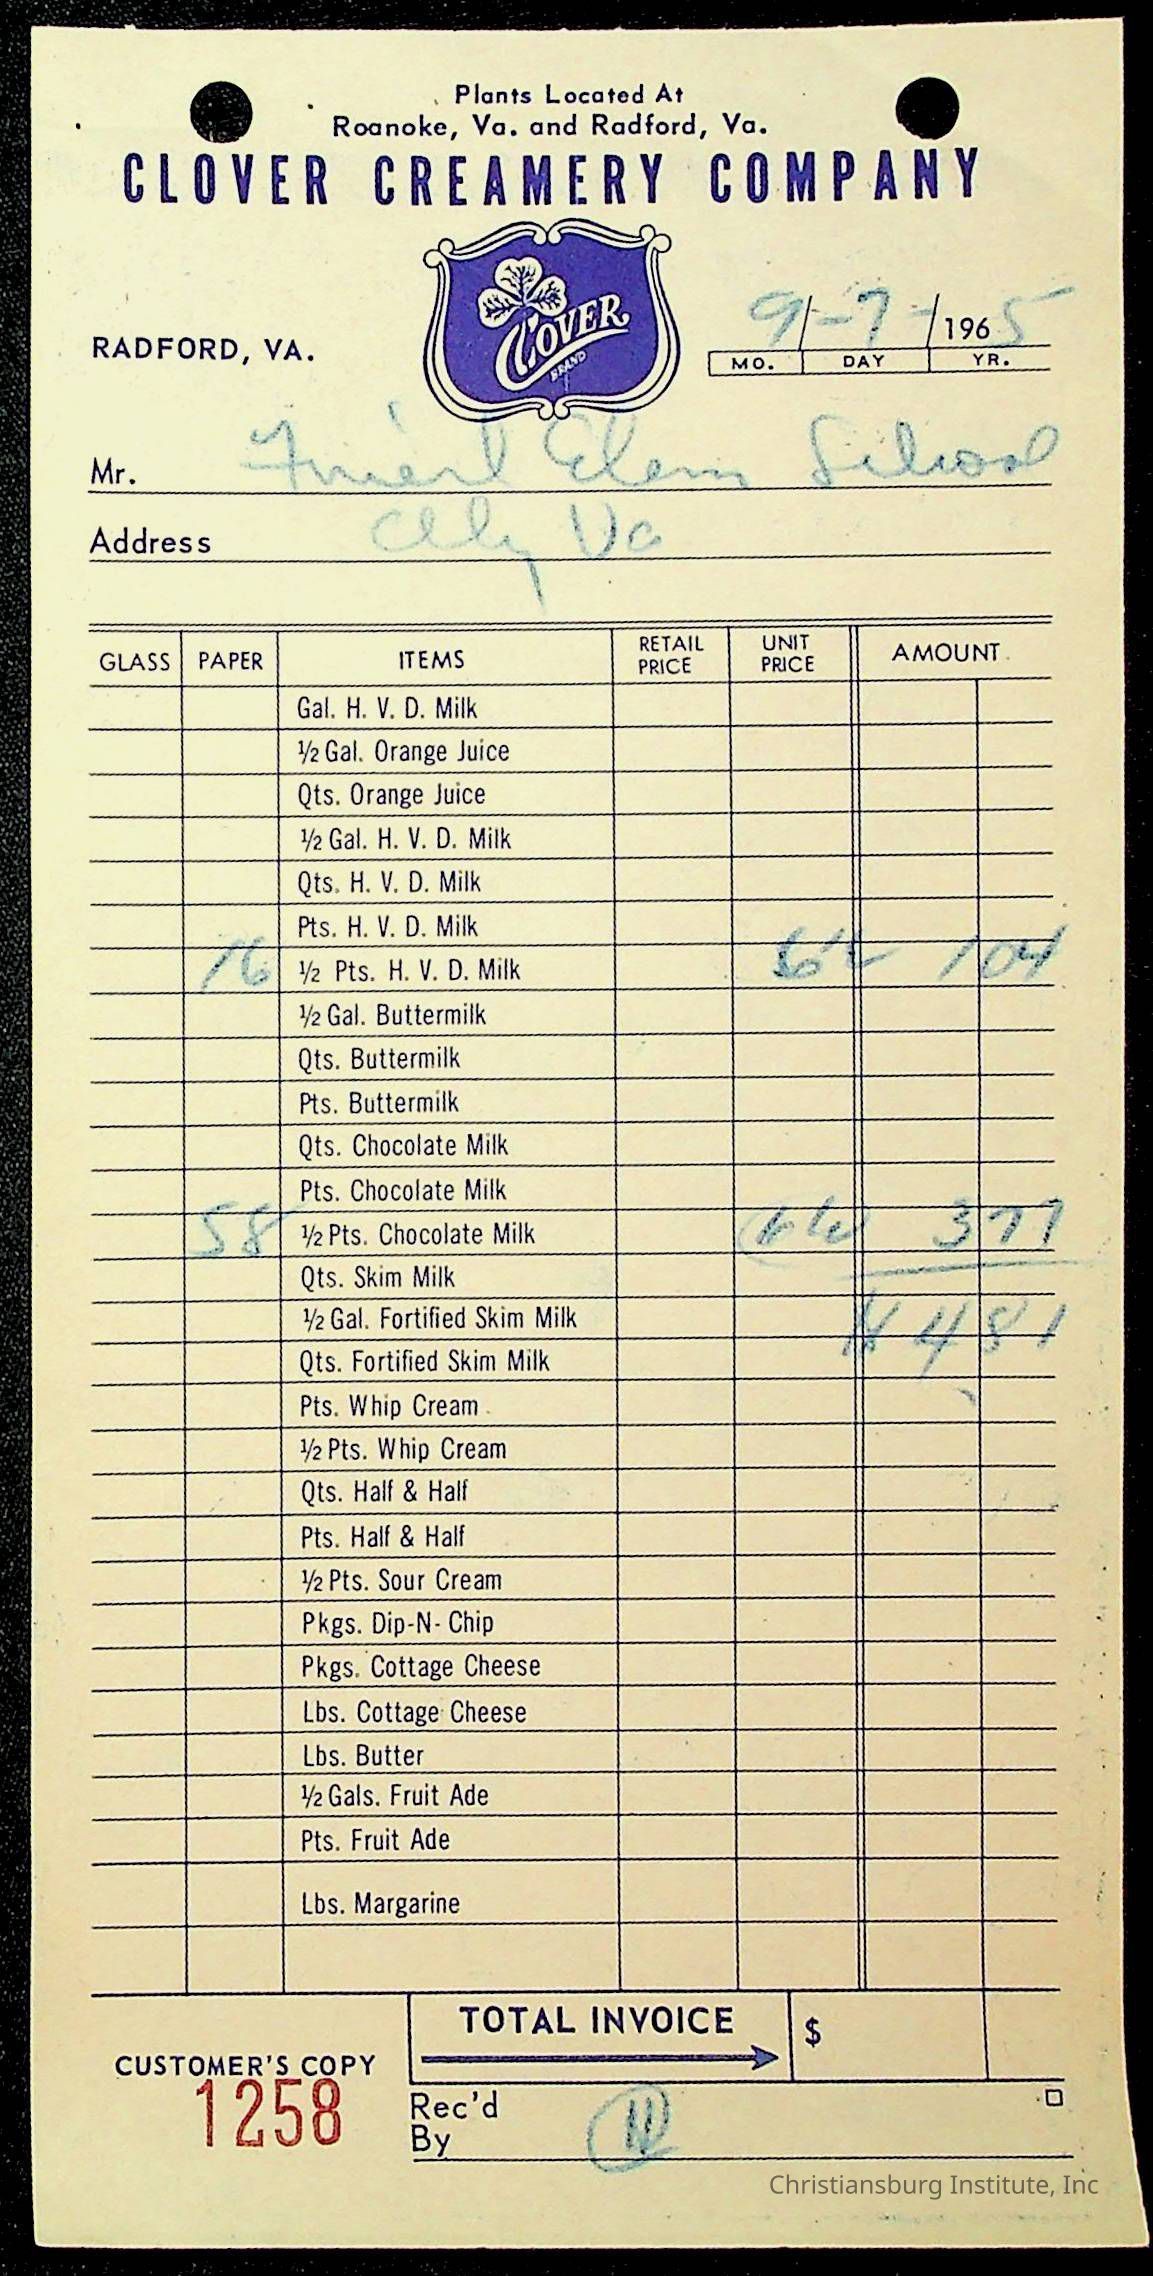 Plants Located At
Roanoke, Va. and Radford, Va.
CLOVER CREAMERY COMPANY
CLOVER
BRAND
RADFORD, VA.
9-7-1965
MO. DAY YR.
Mr. Elem School
Address Va
GLASS PAPER ITEMS RETAIL PRICE UNIT PRICE AMOUNT
Gal. H. V. D. Milk
½ Gal. Orange Juice
Qts. Orange Juice
½ Gal. H. V. D. Milk
Qts. H. V. D. Milk
Pts. H. V. D. Milk
16 ½ Pts. H. V. D. Milk 6½ 104
½ Gal. Buttermilk
Qts. Buttermilk
Pts. Buttermilk
Qts. Chocolate Milk
Pts. Chocolate Milk
58 ½ Pts. Chocolate Milk 377
Qts. Skim Milk
½ Gal. Fortified Skim Milk 481
Qts. Fortified Skim Milk
Pts. Whip Cream
½ Pts. Whip Cream
Qts. Half & Half
Pts. Half & Half
½ Pts. Sour Cream
Pkgs. Dip-N-Chip
Pkgs. Cottage Cheese
Lbs. Cottage Cheese
Lbs. Butter
½ Gals. Fruit Ade
Pts. Fruit Ade
Lbs. Margarine
TOTAL INVOICE $
CUSTOMER'S COPY
1258
Rec'd
By
Christiansburg Institute, Inc